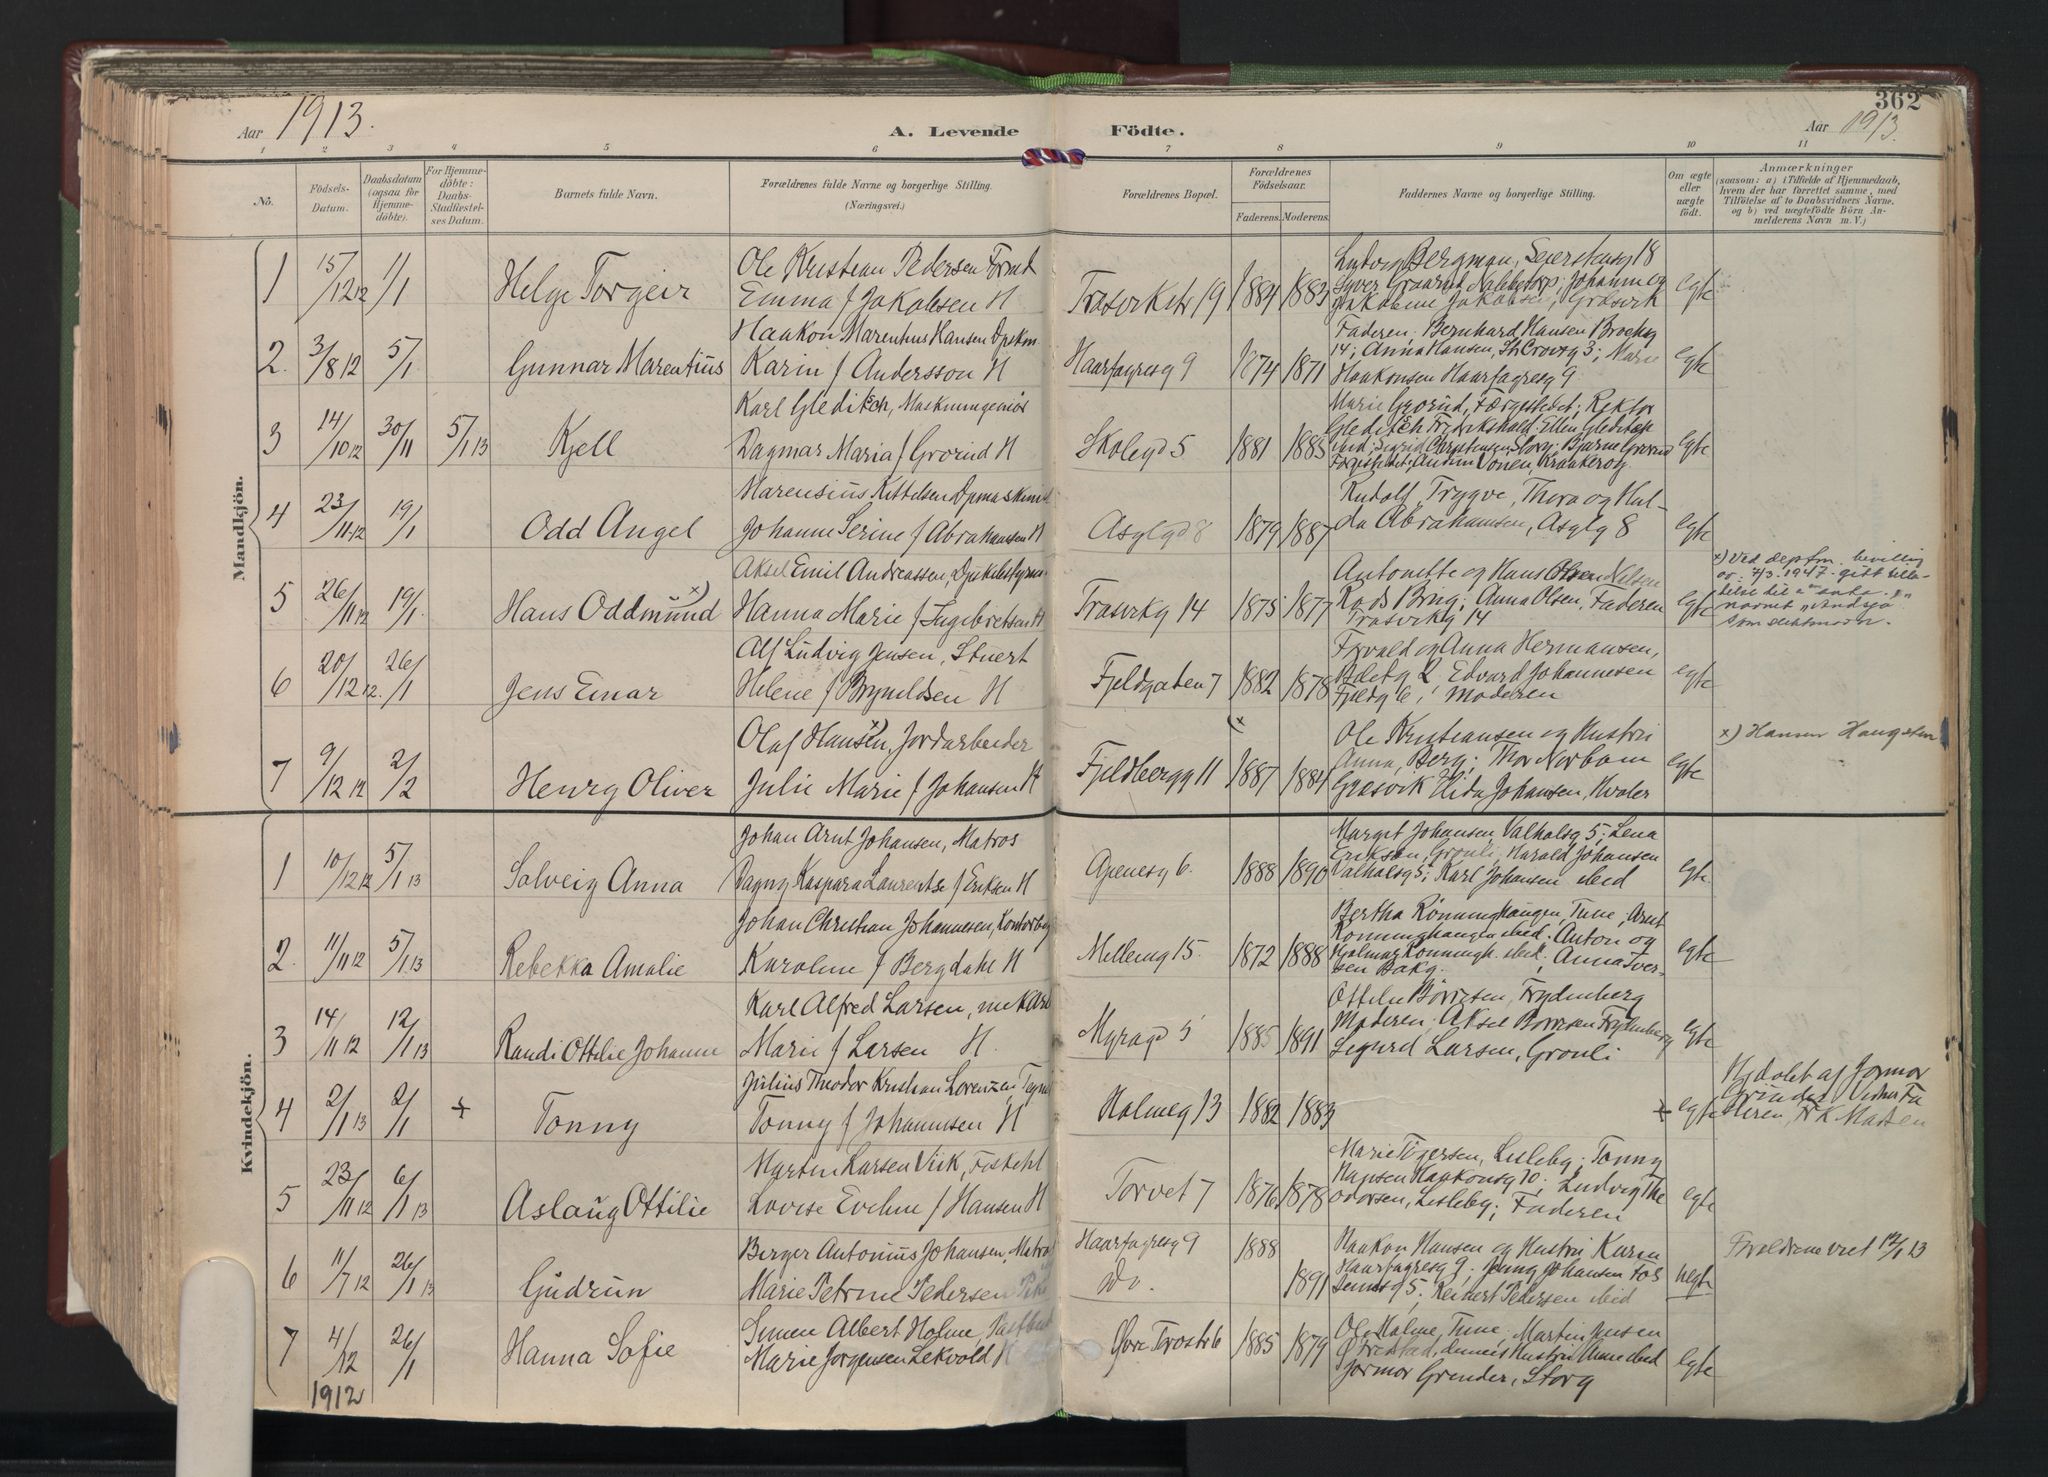 362
Aar 1913.
A. Levende Födte.
Aar 1913.
1 2 3 4 5 6 7 8 9 10 11
No.
Födsels-Datum.
Daabsdatum (ogsaa for Hjemmedöbte).
For Hjemmedöbte: Daabs-Stadfæstelses Datum.
Barnets fulde Navn.
Forældrenes fulde Navne og borgerlige Stilling. (Næringsvei.)
Forældrenes Bopæl.
Forældrenes Födselsaar.
Faderens. Moderens.
Faddernes Navne og borgerlige Stilling.
Om ægte eller uægte födt.
Anmærkninger
(saasom: a) i Tilfælde af Hjemmedaab, hvem der har forrettet samme, med Tilföielse af to Daabsvidners Navne, og b) ved uægtefödte Börn Anmelderens Navn m. V.)
Mandkjön.
1 15/12 12 1/1 Helge Torgeir
Ole Kristian Pedersen
Emma f Jakobsen H
Trosvikstr 19 1884 1883
Ludvig Bergman, 18
Nabbetorp; Johanne og
Jakobine Jakobsen, Gresvik
egte
2. 3/8 12 5/1 Gunnar Marentius
Haakon Marentius Hansen
Karin f Andersson H
Haarfagresg 9 1874 1871
Faderen; Bernhard Hansen
14; Anna Hansen, St Croixg 3; Marie
Haakonsen Haarfagresg 9
egte
3 14/10 12 30/11 5/1 13 Kjell
Karl Gleditsch, Maskiningeniør
Dagmar Maria f Grorud H
Skolegd 5 1881 1885
Marie Grorud, Færgestedet; Rektor
Gleditsch Fredrikshald; Ellen Gleditsch
ibid; Sigrid Christensen, Storg; Bjarne Grorud
Færgestedet; Vonen, Kraakerøy
egte
4 23/11 12 19/1 Odd Angel
Marensius Kittelsen
Johanne Serine f Abrahamsen H
Asylgd 8 1879 1887
Rudolf, Trygve, Thora og Hul-
da Abrahamsen, Asylg 8
egte
5 26/11 12 19/1 Hans Oddmund x)
Aksel Emil Andreassen,
Hanna Marie f Ingebretsen H
Trosvikg 14 1875 1877
Antonette og Hans Olsen Nelsen
Rods Brug; Anna Olsen, Faderen
Trosvikg 14
egte
x) Ved depts. bevilling
av 7/3 1947 gitt tilla-
telse til å anta
navnet "Andsjø"
som slektsnavn.
6 20/12 12. 26/1 Jens Einar
Alf Ludvig Jensen, Stuert
Helene f Bryneldsen H
Fjeldgaten 7 1882 1878
og Anna Hermansen,
2 Edvard Johannesen
Fjeldg 6; Moderen
egte
7 9/12 12 2/2 Henry Oliver
Olaf Hansen x), Jordarbeider
Julie Marie f Johansen H
Fjeldbergg 11 1887 1884
Ole Kristiansen og Hustru
Anna, Berg; Thor Norbom
Gresvik Hilda Johansen, Hvaler
egte
x) Hansen Haugsten
Kvindekjön.
1 10/12 12 5/1 13 Solveig Anna
Johan Arnt Johansen, Matros
Dagny Kaspara Laurentse f Eriksen H
Apenesg 6. 1888 1890
Margit Johansen Valhalsg 5; Lena
Erikson, Gronli, Harald Johansen
Valhalsg 5; Karl Johansen ibid
egte.
2. 11/11 12 5/1 13 Rebekka Amalie
Johan Christian Johannesen,
Karoline f Bergdahl H
Mellemg 15. 1872 1888
Bertha Rönninghaugen, Tune; Arnt
Ronninghaugen ibid. Anton og
Hjalmar Ronningh. ibid; Anna Iver-
sen Bakg.
egte
3 14/11 12 12/1 13 Randi Ottilie Johanne
Karl Alfred Larsen,
Marie f Larsen H.
Myragd 5 1885 1891
Ottilie Börresen, Frydenberg
Moderen. Aksel Borresen Frydenberg
Sigurd Larsen, Gronli
egte
4 2/1 13 2/1 + Tonny
Julius Theodor Kristian Lorenzen,
Tonny f Johannesen H
Holmeg 13 1882 1883
x egte
Hjdøbt af Jormor
Grinder Vidner Fa
deren, Madsen
5 23/11 12 6/1 13 Aslaug Ottilie
Martin Larsen Viik, Fiskehl
Lovise Eveline f Hansen H
Torvet 7 1876 1878
Marie Tögersen, Lisleby; Tonny
Hansen Haakonsg 10; Ludvig The
odorsen, Lisleby; Faderen
egte
6 11/7 12 26/1 13 Gudrun
Berger Antonius Johansen, Matros
Marie Petrine Pedersen Pike
Haarfagresg 9 1888
Do. 1891
Haakon Hansen og Hustru Karen
Haarfagresg 9; Johansen
5; Reinert Pedersen ibid
uegte
Foreldrene viet 12/1 13
7 4/12 26/1 Hanna Sofie
Simen Albert Holme,
Marie Jorgensen Lekvold H
Øvre Torostr 6 1885 1879
Ole Holme, Tune, Martin Jensen
Ø Fredstad, dennes Hustru Anne ibid
Jormor Grinder, Storg
egte
1912